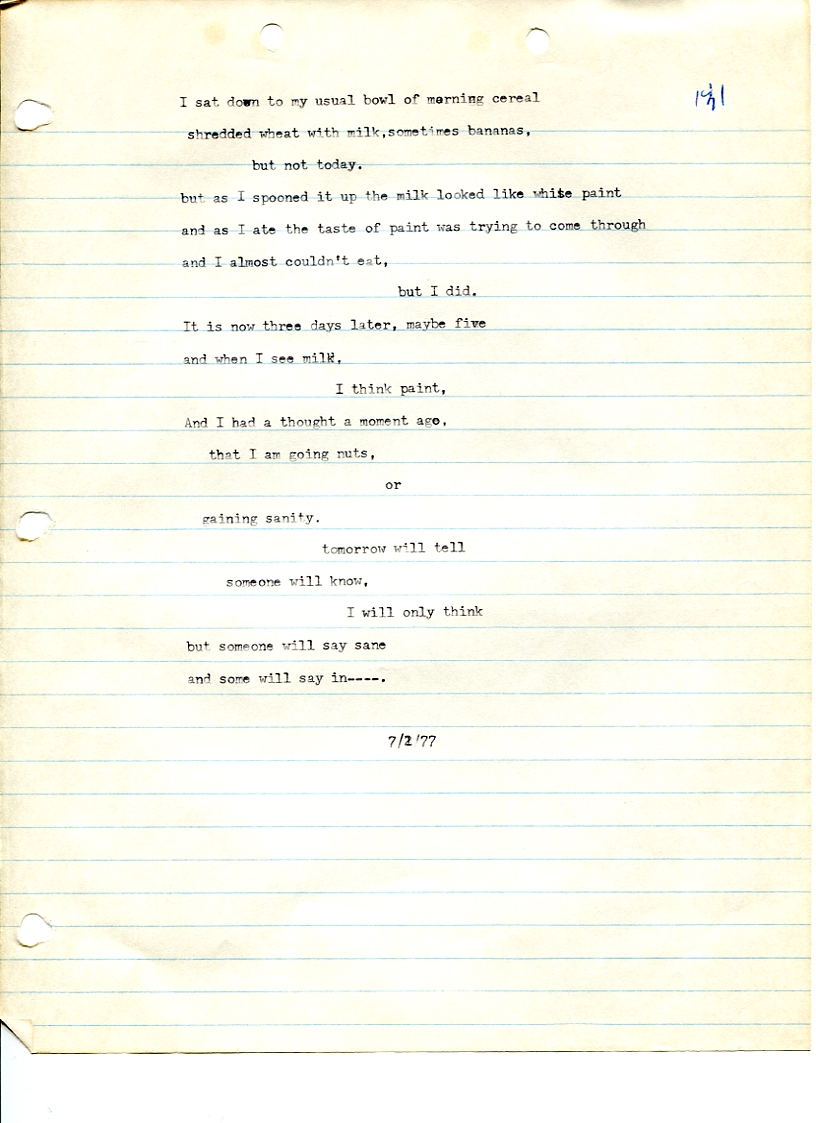 I sat down to my usual bowl of morning cereal
shredded wheat with milk,sometimes bananas,
but not today.
but as I spooned it up the milk looked like white paint
and as I ate the taste of paint was trying to come through
and I almost couldn't eat,
but I did.
It is now three days later, maybe five
and when I see milk,
I think paint,
And I had a thought a moment ago,
that I am going nuts,
or
gaining sanity.
tomorrow will tell
someone will know,
I will only think
but someone will say sane
and some will say in----.
7/2/77